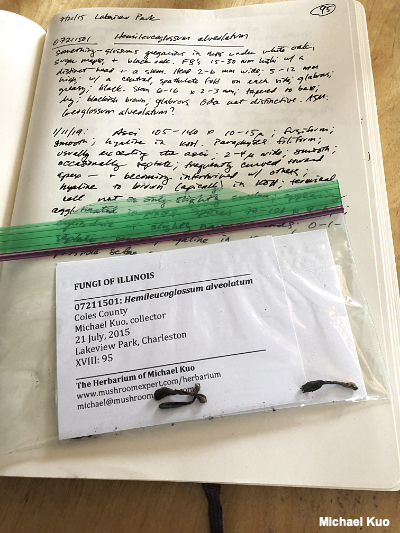 7/21/15 Lakeview Park
95
07211501 Hemileucoglossum alveolatum
Something-glossums gregarious in moss under white oak,
sugar maple, + black oak. FB's 15-30 mm high; w/ a
distinct head + a stem. Head 2-6 mm wide; 5-12 mm
high; w/ a central, spathulate fold on each side; glabrous;
greasy; black. Stem 6-16 x 2-3 mm; tapered to base;
dry; blackish brown; glabrous. Odor not distinctive.
Geoglossum alveolatum?
1/11/19: Asci 105-140 x 10-15 µ; fusiform;
smooth; hyaline in KOH. Paraphyses filiform;
usually exceeding the asci; 2-4 µ wide; smooth;
occasionally septate; frequently curved toward
apex + becoming intertwined w/ others;
hyaline to brown (apically) in KOH; terminal
cell not or only slightly
agglutinated
hyaline in
0-1-
below
FUNGI OF ILLINOIS
07211501: Hemileucoglossum alveolatum
Coles County
Michael Kuo, collector
21 July, 2015
Lakeview Park, Charleston
XVIII: 95
The Herbarium of Michael Kuo
www.mushroomexpert.com/herbarium
michael@mushroom
Michael Kuo